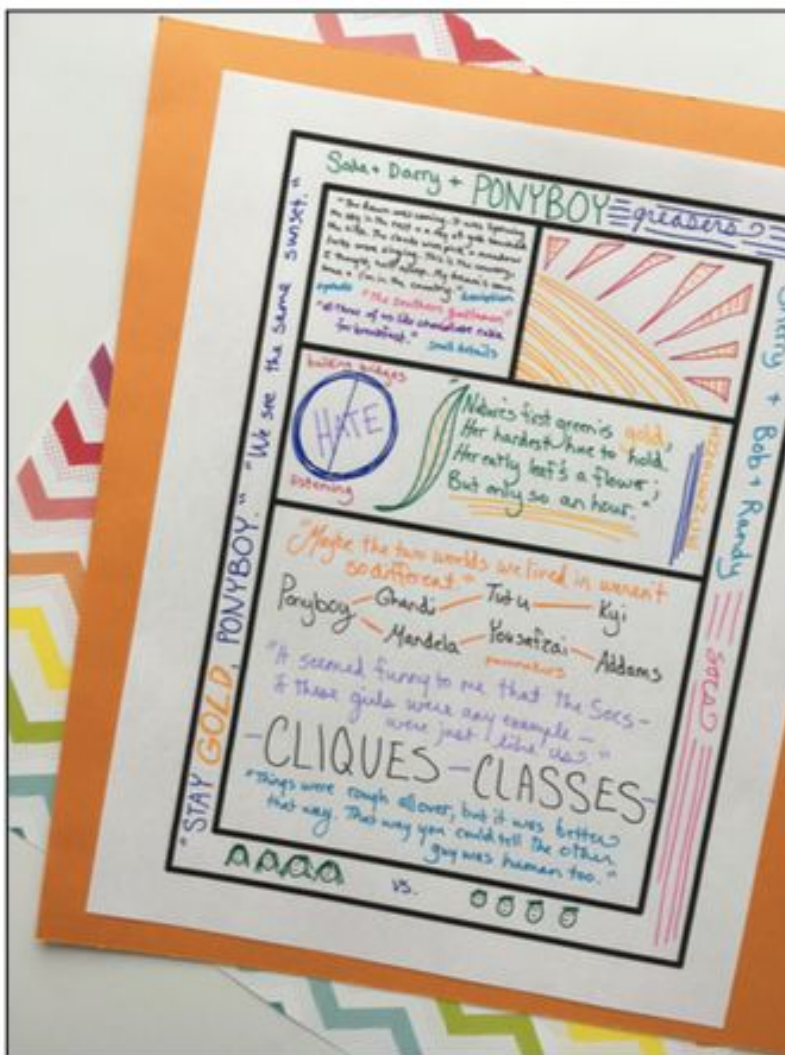 Soda + Darry + PONYBOY greasers
Cherry + Bob + Randy Socs
"STAY GOLD, PONYBOY." "We see the same sunset."
"The dawn was coming. It was
the sky in the east a ray of gold touched
the hills. The clouds were pink & meadow
larks were singing. This is the country,
I thought, half asleep. My dream's come
true & I'm in the country." description
"the southern gentleman"
"all three of us like chocolate cake
for breakfast." small details
building bridges
HATE
listening
"Nature's first green is gold,
Her hardest hue to hold.
Her early leaf's a flower;
But only so an hour."
"Maybe the two worlds we lived in weren't
so different."
Ponyboy Ghandi Tutu Kyi
Mandela Yousafzai Addams
peacemakers
"It seemed funny to me that the Socs -
if these girls were any example -
were just like us."
- CLIQUES - CLASSES -
"Things were rough all over, but it was better
that way. That way you could tell the other
guy was human too."
vs.